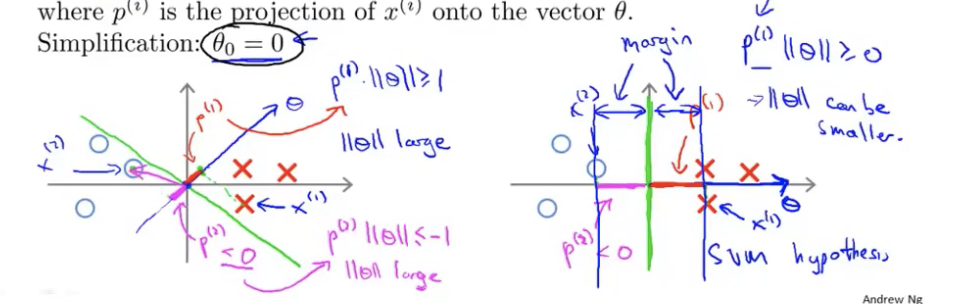 where p^(i) is the projection of x^(i) onto the vector θ.
Simplification: θ₀ = 0
p^(1) · ||θ|| ≥ 1
θ
p^(1)
||θ|| large
x^(2)
x^(1)
p^(2) < 0
p^(2) ||θ|| ≤ -1
||θ|| large
margin
p^(1) ||θ|| ≥ 0
→ ||θ|| can be
smaller.
x^(2)
p^(1)
θ
x^(1)
p^(2) < 0
SVM hypothesis
Andrew Ng